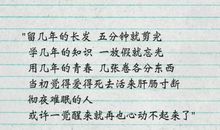 "留几年的长发 五分钟就剪完
学几年的知识 一放假就忘光
用几年的青春 几张卷各分东西
当初觉得爱得死去活来肝肠寸断
彻夜难眠的人
或许一觉醒来就再也心动不起来了"